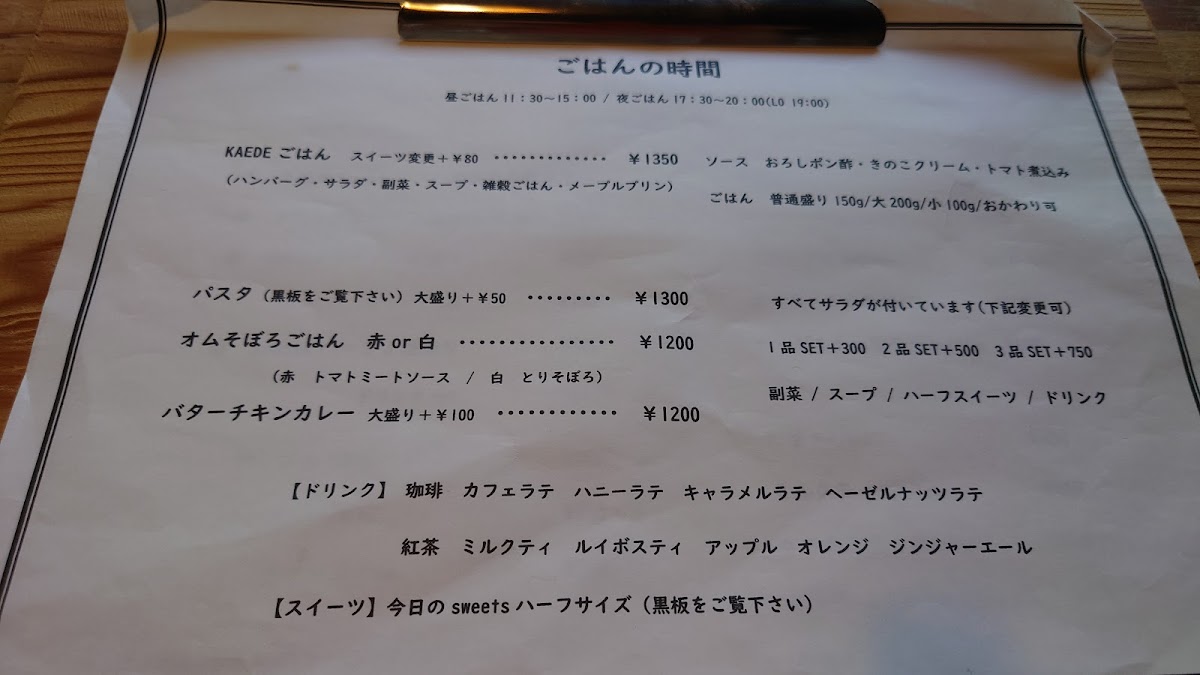 ごはんの時間
昼ごはん 11:30～15:00 / 夜ごはん 17:30～20:00(LO 19:00)
KAEDE ごはん スイーツ変更+¥80 ・・・・・・・・・・・・・ ¥1350
(ハンバーグ・サラダ・副菜・スープ・雑穀ごはん・メープルプリン)
ソース おろしポン酢・きのこクリーム・トマト煮込み
ごはん 普通盛り 150g/大 200g/小 100g/おかわり可
パスタ (黒板をご覧下さい) 大盛り+¥50 ・・・・・・・・・ ¥1300
オムそぼろごはん 赤 or 白 ・・・・・・・・・・・・・・・・ ¥1200
(赤 トマトミートソース / 白 とりそぼろ)
バターチキンカレー 大盛り+¥100 ・・・・・・・・・・・・ ¥1200
すべてサラダが付いています(下記変更可)
1品 SET+300 2品 SET+500 3品 SET+750
副菜 / スープ / ハーフスイーツ / ドリンク
【ドリンク】 珈琲 カフェラテ ハニーラテ キャラメルラテ ヘーゼルナッツラテ
紅茶 ミルクティ ルイボスティ アップル オレンジ ジンジャーエール
【スイーツ】今日の sweets ハーフサイズ (黒板をご覧下さい)